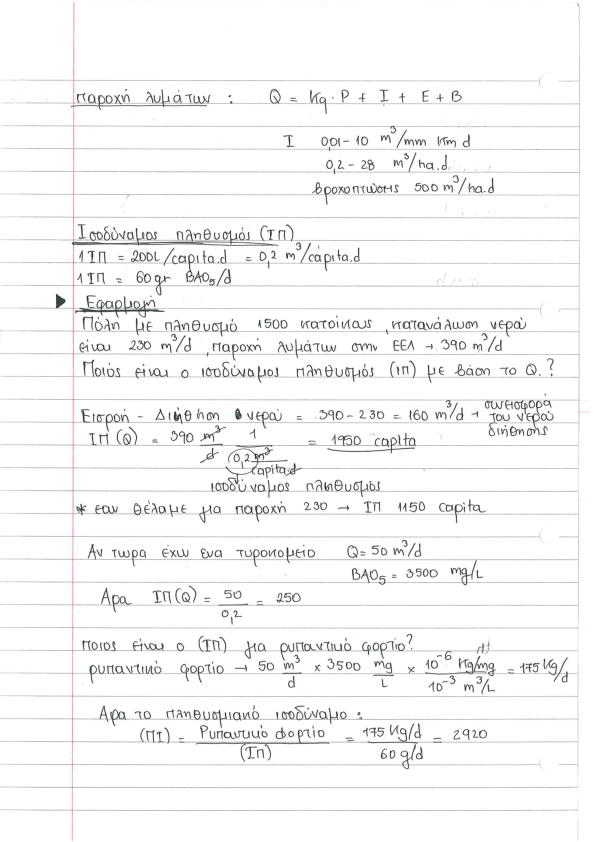 παροχή λυμάτων : Q = Kq · P + I + E + B
I 0,01-10 m³/mm Km d
0,2-28 m³/ha.d
βροχοπτώσης 500 m³/ha.d
Ισοδύναμος πληθυσμός (ΙΠ)
1 ΙΠ = 200L/capita.d = 0,2 m³/cápita.d
1 ΙΠ = 60gr BAO₅/d
▶ Εφαρμογή
Πόλη με πληθυσμό 1500 κατοίκους, κατανάλωση νερού
είναι 230 m³/d, παροχή λυμάτων στην ΕΕΛ → 390 m³/d
Ποιός είναι ο ισοδύναμος πληθυσμός (ιπ) με βάση το Q.?
Εισροή - Διήθηση νερού = 390-230 = 160 m³/d → συνεισφορά
του νερού
διήθησης
ΙΠ(Q) = 390 m³/d 1/(0,2 m³/capita.d) = 1950 capita
ισοδύναμος πληθυσμός
* εαν θέλαμε για παροχή 230 → ΙΠ 1150 capita
Αν τωρα έχω ενα τυροκομείο Q=50 m³/d
BAO₅ = 3500 mg/L
Αρα ΙΠ(Q) = 50/0,2 = 250
ποιος είναι ο (ΙΠ) για ρυπαντικό φορτίο?
ρυπαντικό φορτίο → 50 m³/d × 3500 mg/L × 10⁻⁶ Kg/mg / 10⁻³ m³/L = 175 Kg/d
Αρα το πληθυσμιακό ισοδύναμο :
(ΠΙ) = Ρυπαντικό Φορτίο/(ΙΠ) = 175 Kg/d / 60 g/d = 2920